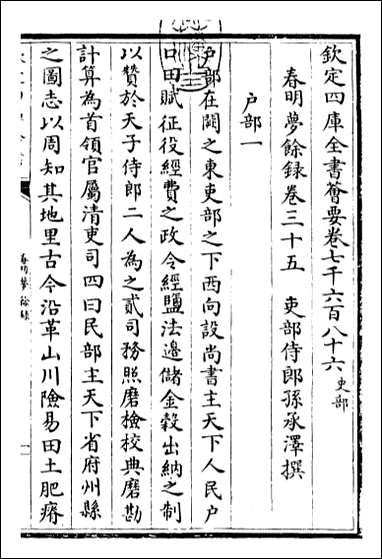 欽定四庫全書薈要卷七千六百八十六 史部
春明夢餘録卷三十五 吏部侍郎孫承澤撰
户部一
户部在闕之東吏部之下西向設尚書主天下人民户
口田賦征役經費之政令經鹽法邊儲金穀出納之制
以贊於天子侍郎二人為之貳司務照磨檢校典磨勘
計算為首領官屬清吏司四曰民部主天下省府州縣
之圖志以周知其地里古今沿革山川險易田土肥瘠